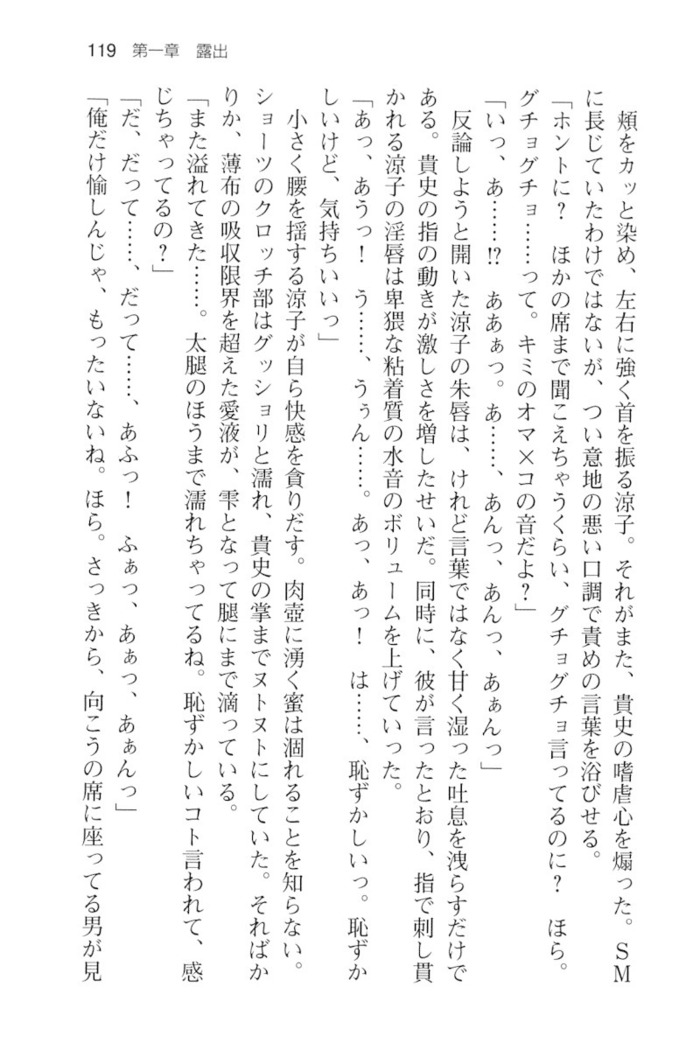 119　第一章　露出
　頬をカッと染め、左右に強く首を振る涼子。それがまた、貴史の嗜虐心を煽った。ＳＭ
に長じていたわけではないが、つい意地の悪い口調で責めの言葉を浴びせる。
「ホントに？　ほかの席まで聞こえちゃうくらい、グチョグチョ言ってるのに？　ほら。
グチョグチョ……って。キミのオマ×コの音だよ？」
「いっ、あ……!?　ああぁっ。あ……、あんっ、あんっ、あぁんっ」
　反論しようと開いた涼子の朱唇は、けれど言葉ではなく甘く湿った吐息を洩らすだけで
ある。貴史の指の動きが激しさを増したせいだ。同時に、彼が言ったとおり、指で刺し貫
かれる涼子の淫唇は卑猥な粘着質の水音のボリュームを上げていった。
「あっ、あうっ！　う……、うぅん……。あっ、あっ！　は……、恥ずかしいっ。恥ずか
しいけど、気持ちいいっ」
　小さく腰を揺する涼子が自ら快感を貪りだす。肉壺に湧く蜜は涸れることを知らない。
ショーツのクロッチ部はグッショリと濡れ、貴史の掌までヌトヌトにしていた。そればか
りか、薄布の吸収限界を超えた愛液が、雫となって腿にまで滴っている。
「また溢れてきた……。太腿のほうまで濡れちゃってるね。恥ずかしいコト言われて、感
じちゃってるの？」
「だ、だって……、だって……、あふっ！　ふぁっ、あぁっ、あぁんっ」
「俺だけ愉しんじゃ、もったいないね。ほら。さっきから、向こうの席に座ってる男が見